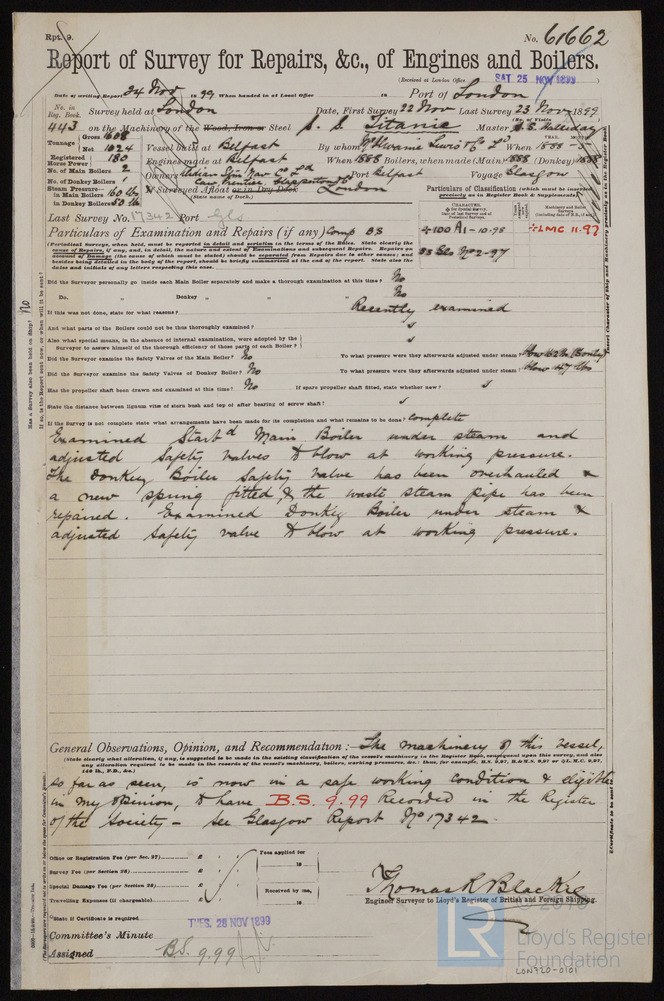 Rpt. 9.
No. 61662
Report of Survey for Repairs, &c., of Engines and Boilers.
(Received at London Office SAT. 25 NOV 1899 )
Date of writing Report 24 Nov 1899 When handed in at Local Office 18 Port of London
No. in Reg. Book. Survey held at London Date, First Survey 22 Nov Last Survey 23 Nov 1899
(No. of Visits )
443 on the Machinery of the Wood, Iron or Steel S. S. Titanic Master Halliday
Tonnage Gross 1608 Net 1024 Vessel built at Belfast By whom McIlwaine Lewis & Co Ld When 1888 - 5
Registered Horse Power 180 Engines made at Belfast When 1888 Boilers, when made (Main) 1888 (Donkey) 1888
No. of Main Boilers 2 Owners Port Belfast Voyage Glasgow
No. of Donkey Boilers 1
Steam Pressure— in Main Boilers 160 lbs If Surveyed Afloat or in Dry Dock London
in Donkey Boilers 50 lbs (State name of Dock.)
Particulars of Classification (which must be inserted precisely as in Register Book & Supplements)
Last Survey No. 17342 Port Gls
Particulars of Examination and Repairs (if any) Comp BS
+100 A1 - 10-98
+LMC 11.97
SS Gls No2-97
(Periodical Surveys, when held, must be reported in detail and seriatim in the terms of the Rules. State clearly the
cause of Repairs, if any, and, in detail, the nature and extent of Examinations and subsequent Repairs. Repairs on
account of Damage (the cause of which must be stated) should be separated from Repairs due to other causes; and
besides being detailed in the body of the report, should be briefly summarized at the end of the report. State also the
dates and initials of any letters respecting this case.
Did the Surveyor personally go inside each Main Boiler separately and make a thorough examination at this time? No
Do. „ Donkey „ „ „ „ No
If this was not done, state for what reasons? Recently examined
And what parts of the Boilers could not be thus thoroughly examined?
Also what special means, in the absence of internal examination, were adopted by the
Surveyor to assure himself of the thorough efficiency of those parts of each Boiler?
Did the Surveyor examine the Safety Valves of the Main Boiler? No To what pressure were they afterwards adjusted under steam
Did the Surveyor examine the Safety Valves of Donkey Boiler? No To what pressure were they afterwards adjusted under steam blow 47 lbs
Has the propeller shaft been drawn and examined at this time? No If spare propeller shaft fitted, state whether new?
State the distance between lignum vitæ of stern bush and top of after bearing of screw shaft?
If the Survey is not complete state what arrangements have been made for its completion and what remains to be done? Complete
Examined Starbd Main Boiler under steam and
adjusted safety valves to blow at working pressure.
The Donkey Boiler Safety valve has been overhauled &
a new spring fitted, & the waste steam pipe has been
repaired. Examined Donkey Boiler under steam &
adjusted safety valve to blow at working pressure.
General Observations, Opinion, and Recommendation:— The machinery of this vessel,
(State clearly what alteration, if any, is suggested to be made in the existing classification of the vessel's machinery in the Register Book, consequent upon this survey, and also
any alteration required to be made in the records of the vessel's machinery, boilers, working pressure, &c.: thus, for example, B.S. 9,97, B.&M.S. 9,97 or + L.M.C. 9,97,
140 lb., F.D., &c.)
so far as seen, is now in a safe working condition & eligible
in my opinion, to have B.S. 9.99 Recorded in the Register
of the Society - See Glasgow Report No 17342.
Office or Registration Fee (per Sec. 27) £ Fees applied for
Survey Fee (per Section 28) £ 18
Special Damage Fee (per Section 28) £ Received by me,
Travelling Expenses (if chargeable) £ 18
State if Certificate is required
Thomas R Blackie
Engineer Surveyor to Lloyd's Register of British and Foreign Shipping.
Committee's Minute TUES. 28 NOV 1899
Assigned B.S. 9.99
© 2016
LR Lloyd's Register
Foundation
LON720-0101